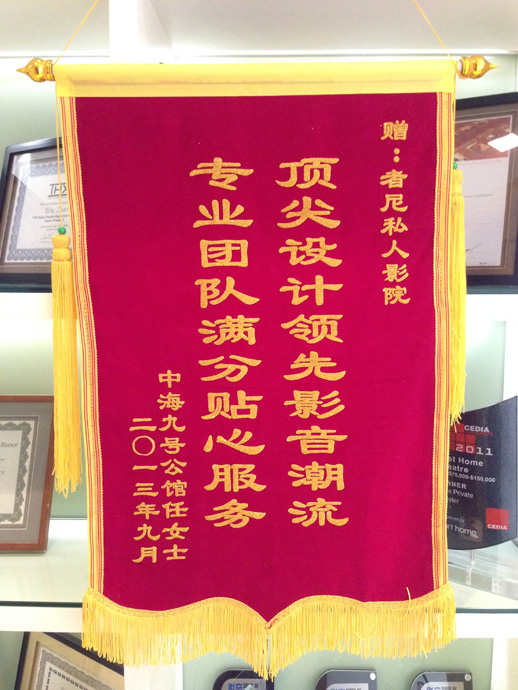 赠：者尼私人影院
顶尖设计领先影音潮流
专业团队满分贴心服务
中海九号公馆任女士
二〇一三年九月
THX
CEDIA
2011
st Home
eatre
$75,000-$150,000
NNER
e Private
CEDIA